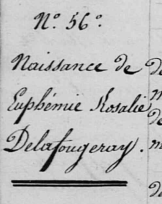 N.º 56º
Naissance de
Euphémie Rosalie
Delafougeray.